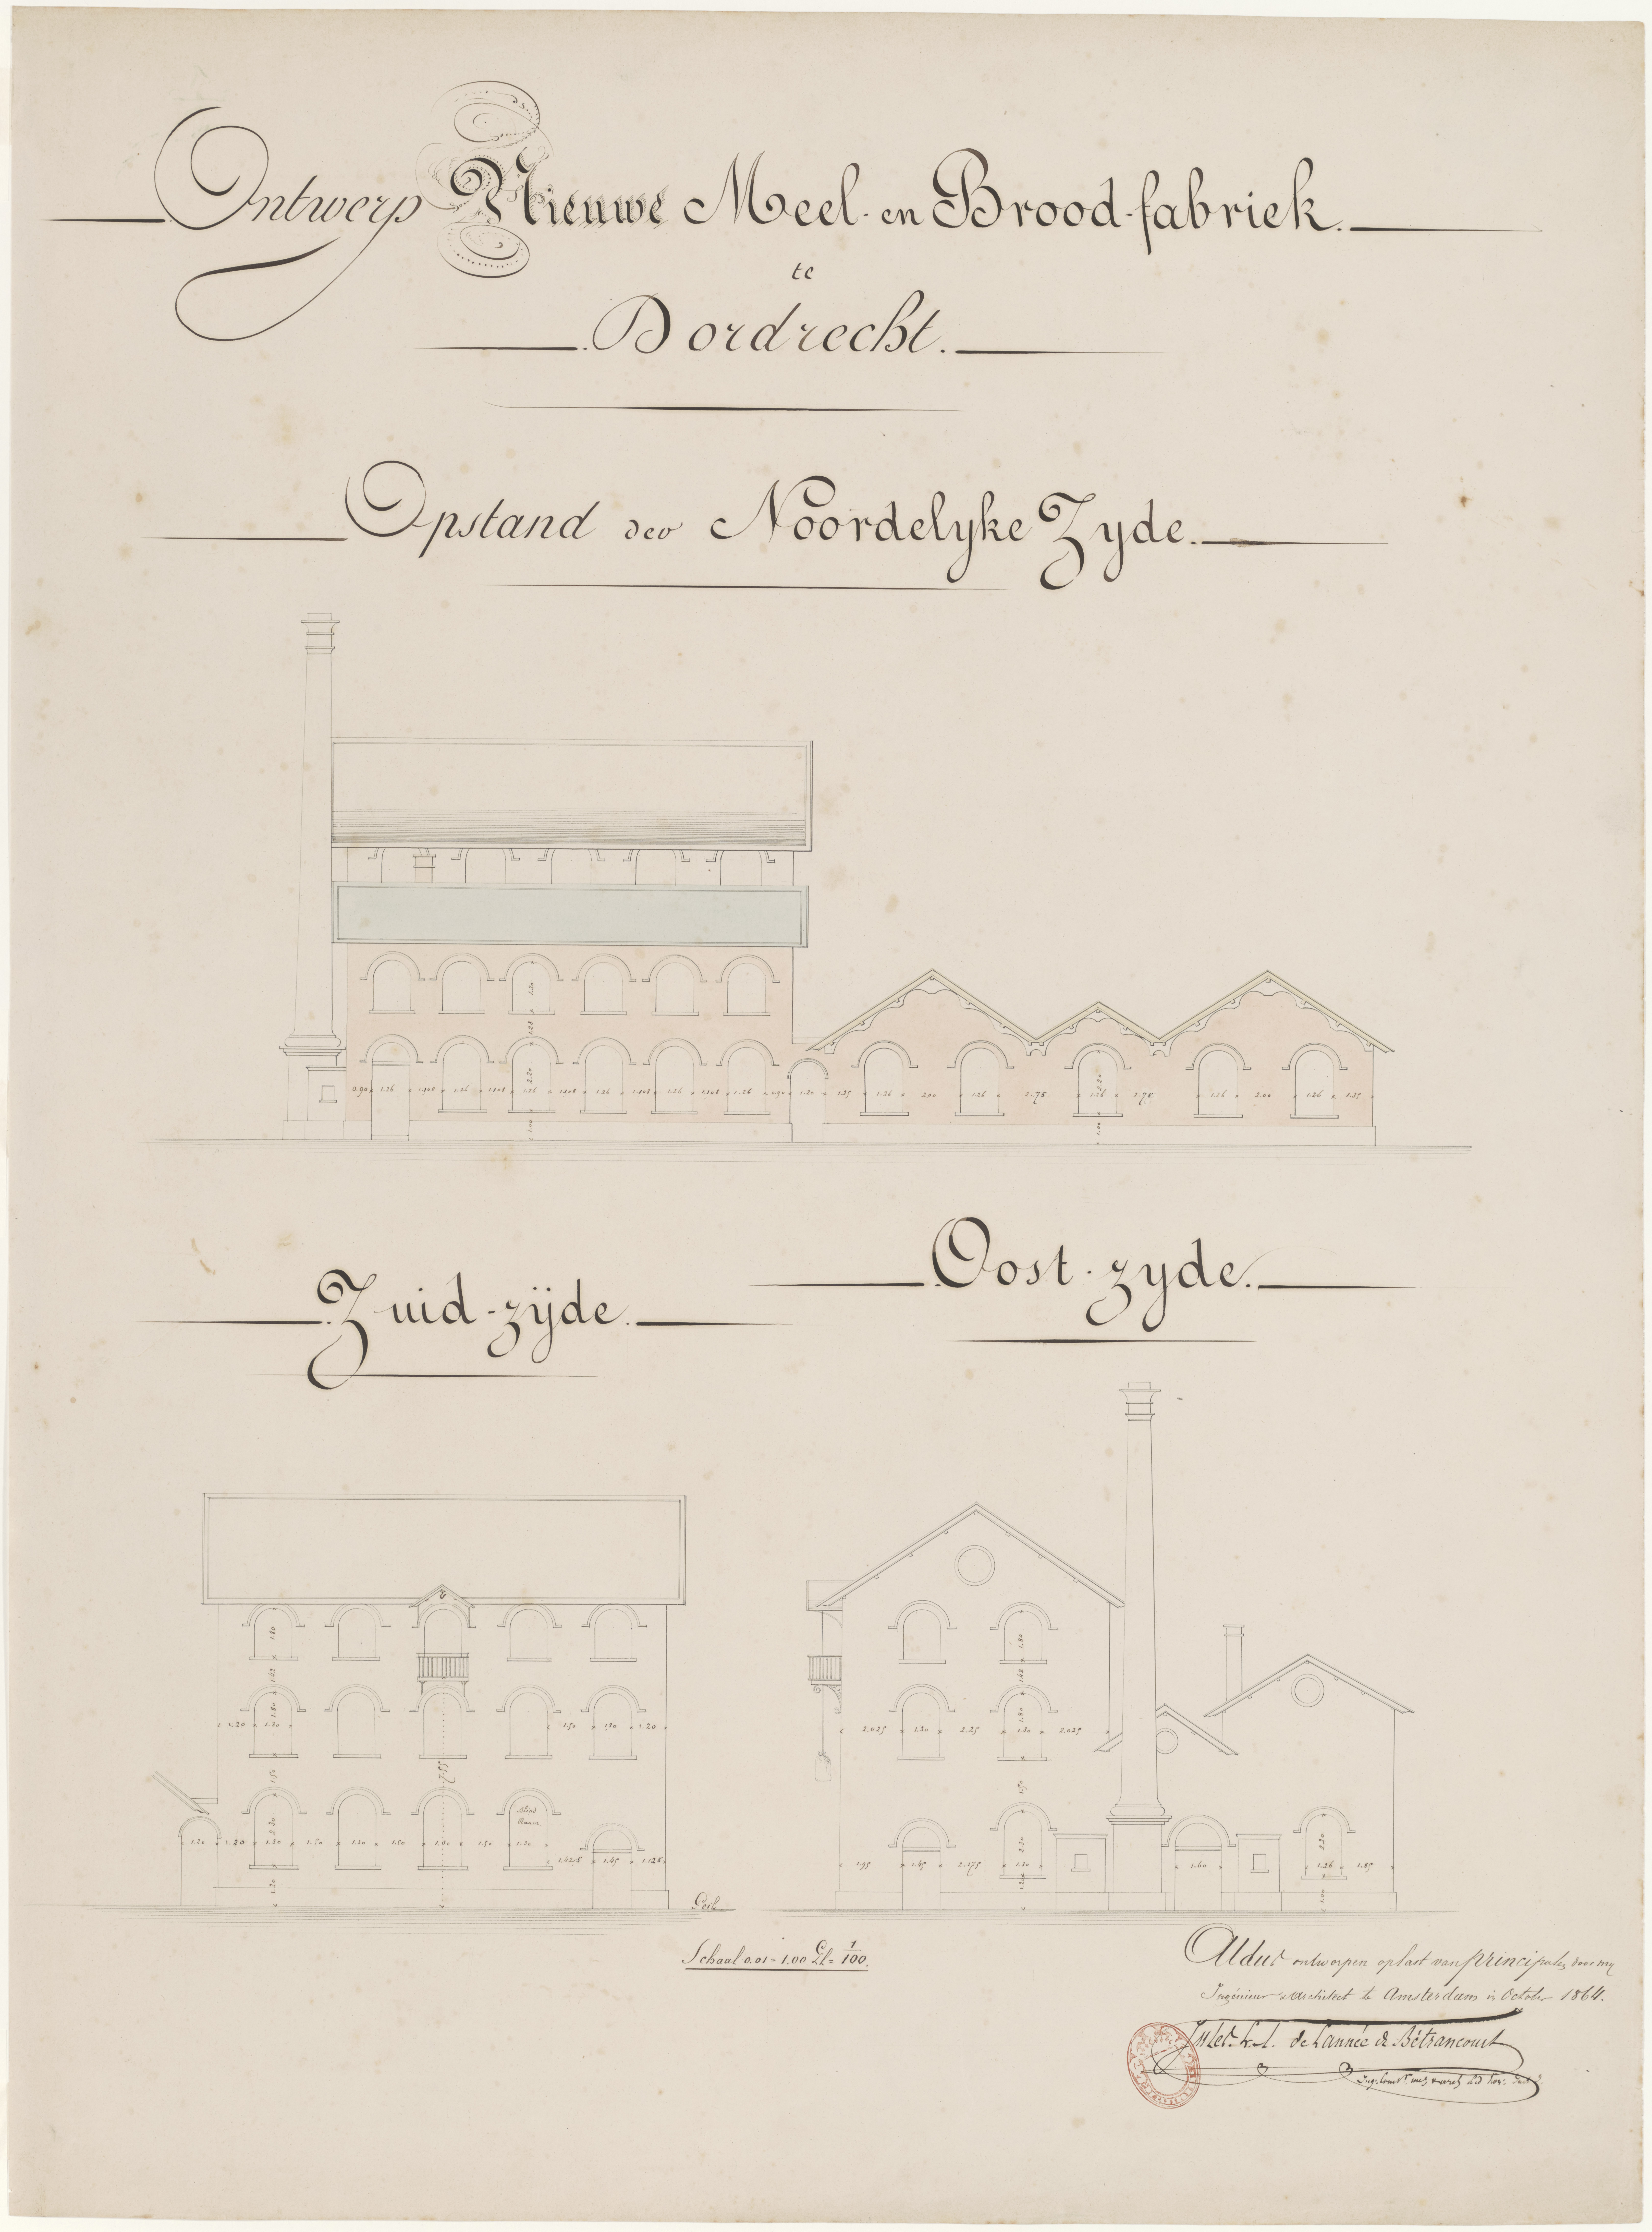 Ontwerp Nieuwe Meel- en Brood-fabriek.
te
Dordrecht.
Opstand der Noordelyke Zyde.
1.20
1.28
2.20
2.20
0.90 1.26 1.108 1.26 1.108 1.26 1.108 1.26 1.108 1.26 1.108 1.26 0.90 1.20 1.25 1.26 2.00 1.26 2.75 1.26 2.75 1.26 2.00 1.26 1.25
1.00
1.00
Oost-zyde.
Zuid-zijde.
1.80
1.62
1.80
1.20 1.30 1.50 1.30 1.20
1.50
7.55
Blind
Raam
2.20
1.20 1.20 1.30 1.50 1.30 1.50 1.30 1.50 1.30
1.425 1.45 1.125
1.20
Peil
1.80
1.62
1.80
2.025 1.30 2.25 1.30 2.025
1.50
2.20
2.20
1.95 1.45 2.175 1.30 1.60 1.26 1.85
Schaal 0.01 = 1.00 El = 1/100.
Aldus ontworpen op last van principalen door my
Ingénieur Architect te Amsterdam in October 1864.
de Lannée de Bétrancourt